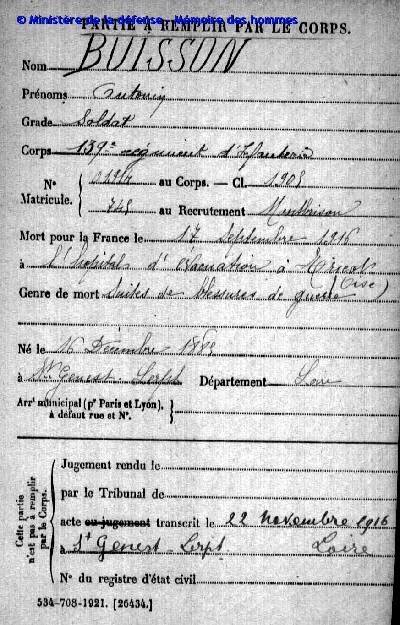 © Ministère de la défense - Mémoire des hommes
PARTIE À REMPLIR PAR LE CORPS.
Nom BUISSON
Prénoms Antonin
Grade Soldat
Corps 139e régiment d'Infanterie
N° Matricule. { au Corps. — Cl. 1905
745 au Recrutement Montbrison
Mort pour la France le 17 Septembre 1916
à l'hôpital d'évacuation à (Oise)
Genre de mort Suites de blessures de guerre
Né le 16 Décembre
à St Genest-Lerpt Département Loire
Arr' municipal (pr Paris et Lyon), à défaut rue et N°. }
Cette partie n'est pas à remplir par le Corps.
Jugement rendu le
par le Tribunal de
acte ou jugement transcrit le 22 novembre 1916
à St Genest-Lerpt Loire
N° du registre d'état civil
534-708-1921. [26434.]